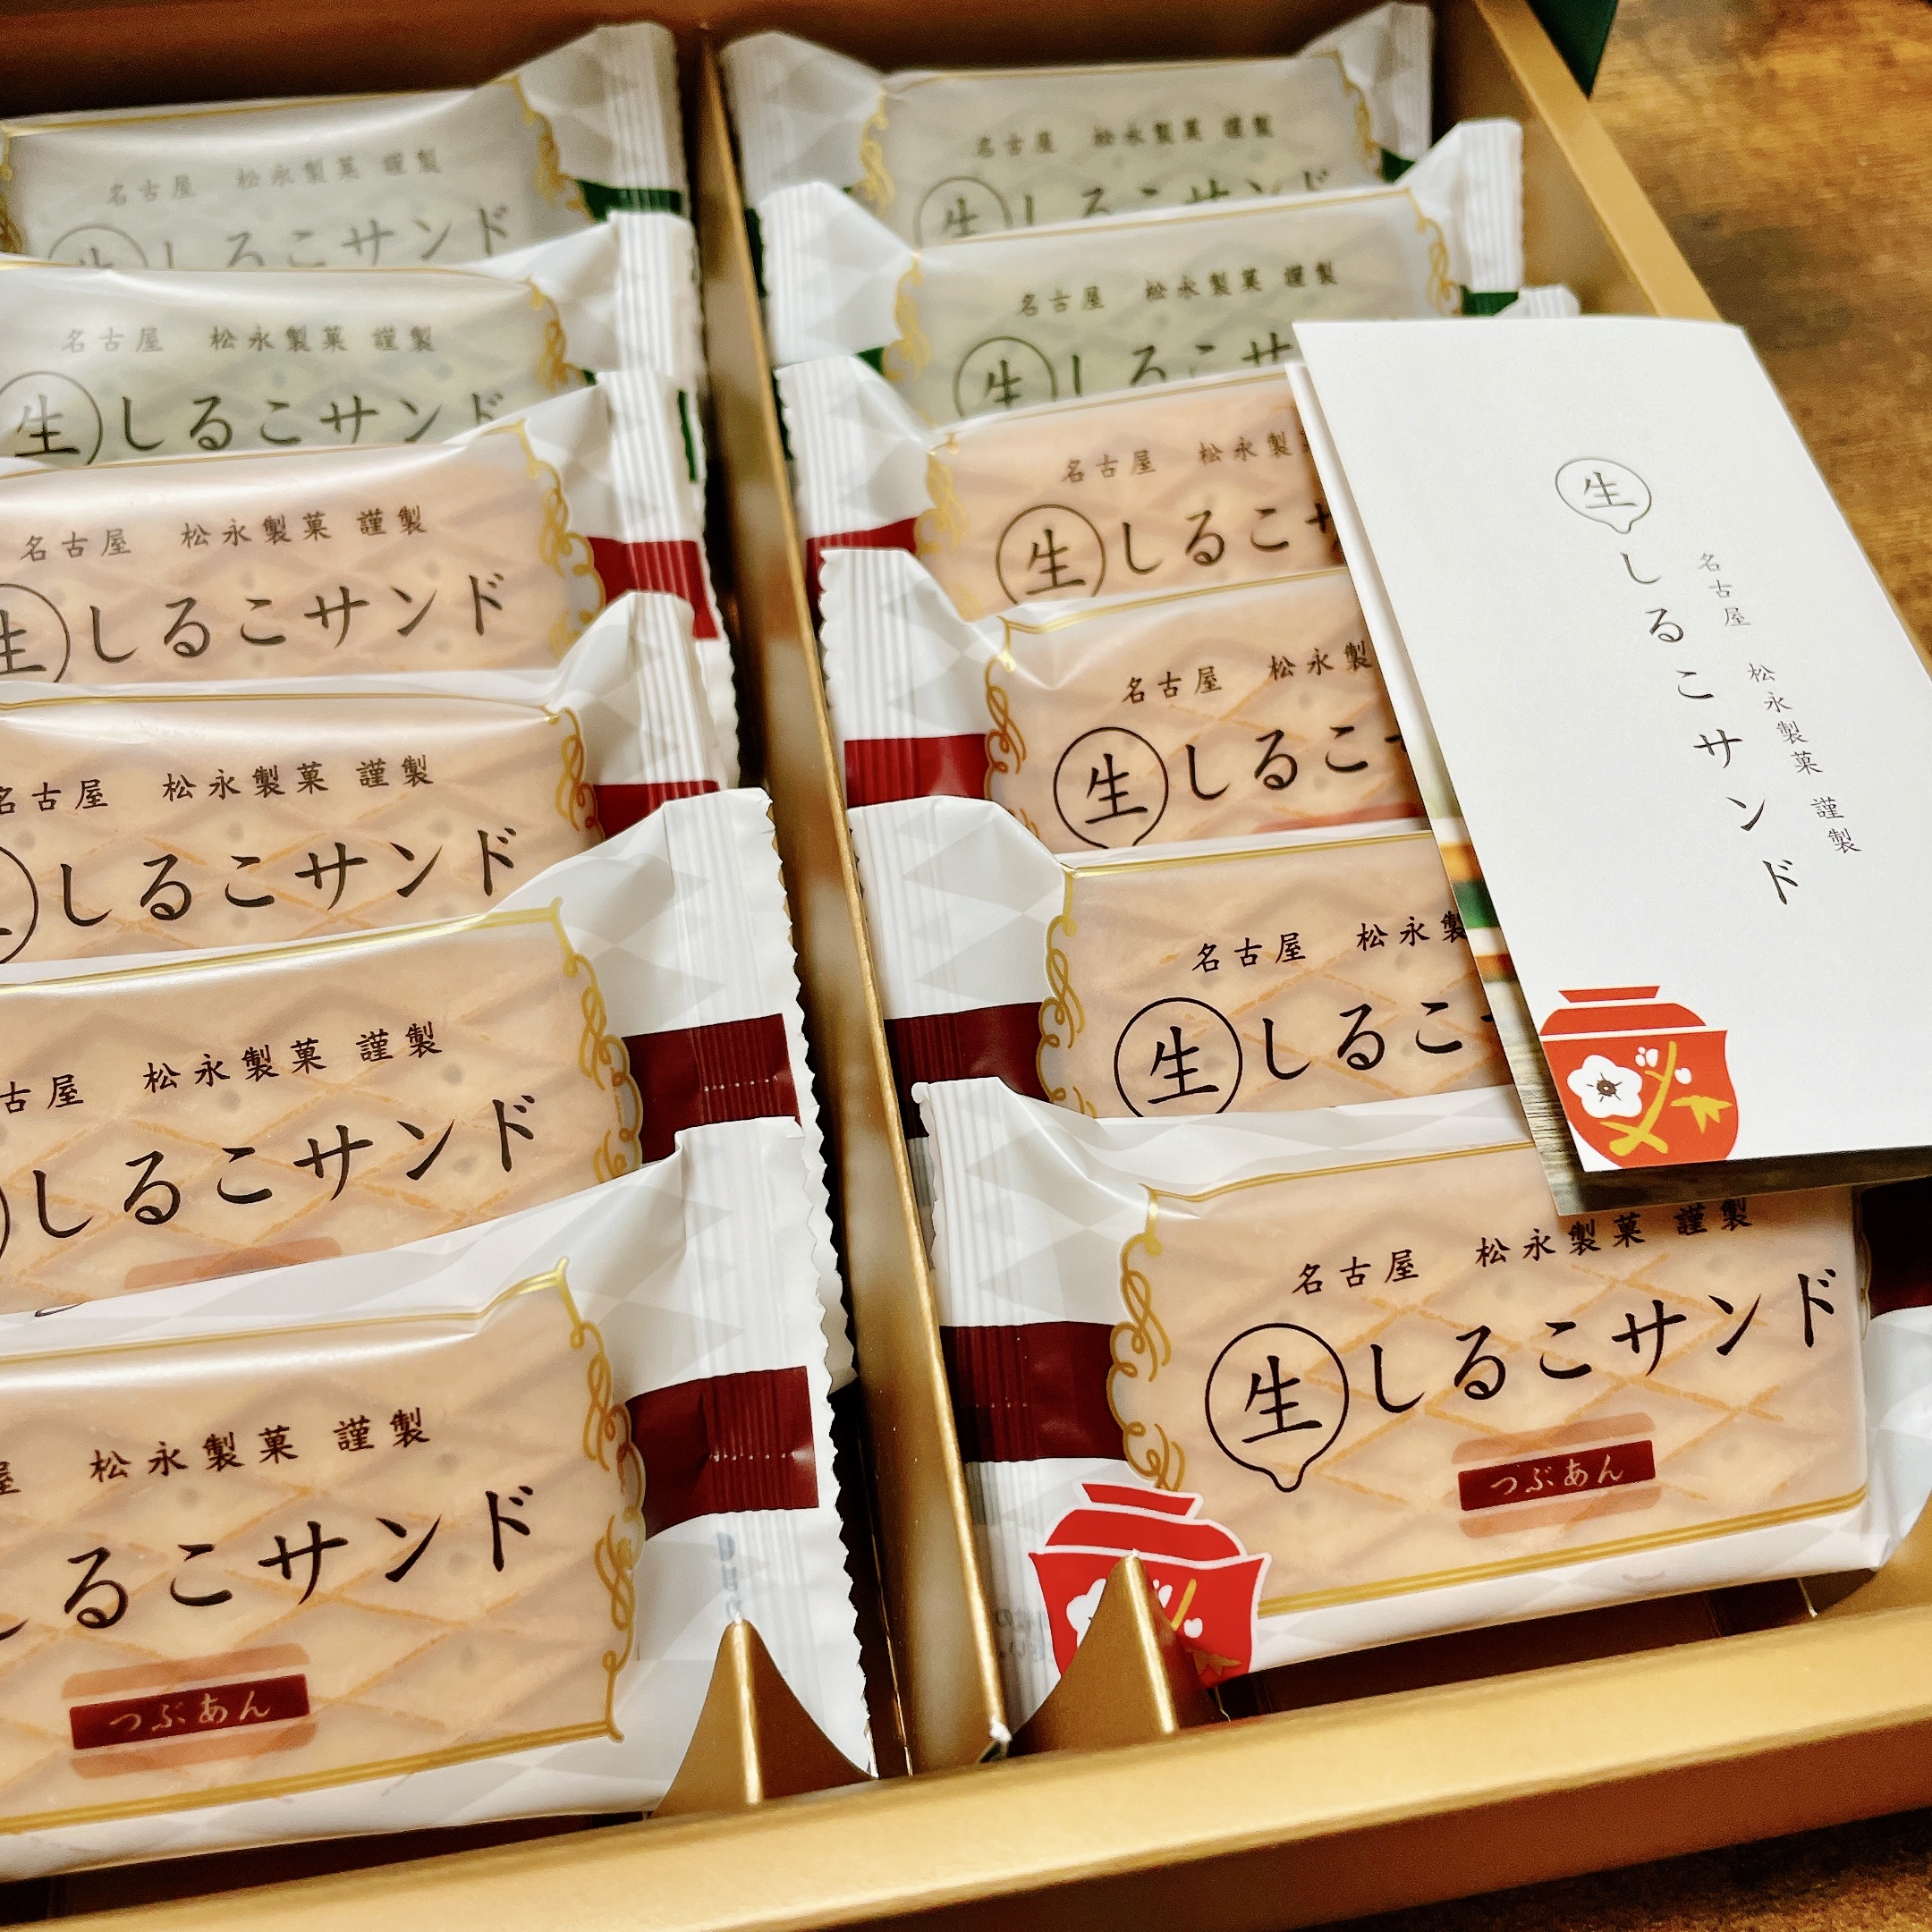 名古屋 松永製菓 謹製
生しるこサンド
名古屋 松永製菓 謹製
生しるこサンド
名古屋 松永製菓 謹製
生しるこサンド
名古屋 松永製菓 謹製
しるこサンド
古屋 松永製菓 謹製
しるこサンド
屋 松永製菓 謹製
しるこサンド
つぶあん
名古屋 松永製菓 謹製
生しるこサンド
名古屋 松永製菓 謹製
生しるこサ
名古屋 松永製
生しるこ
名古屋 松永製
生しるこ
名古屋 松永製
生しるこ
名古屋 松永製菓 謹製
生しるこサンド
つぶあん
名古屋 松永製菓 謹製
生しるこサンド